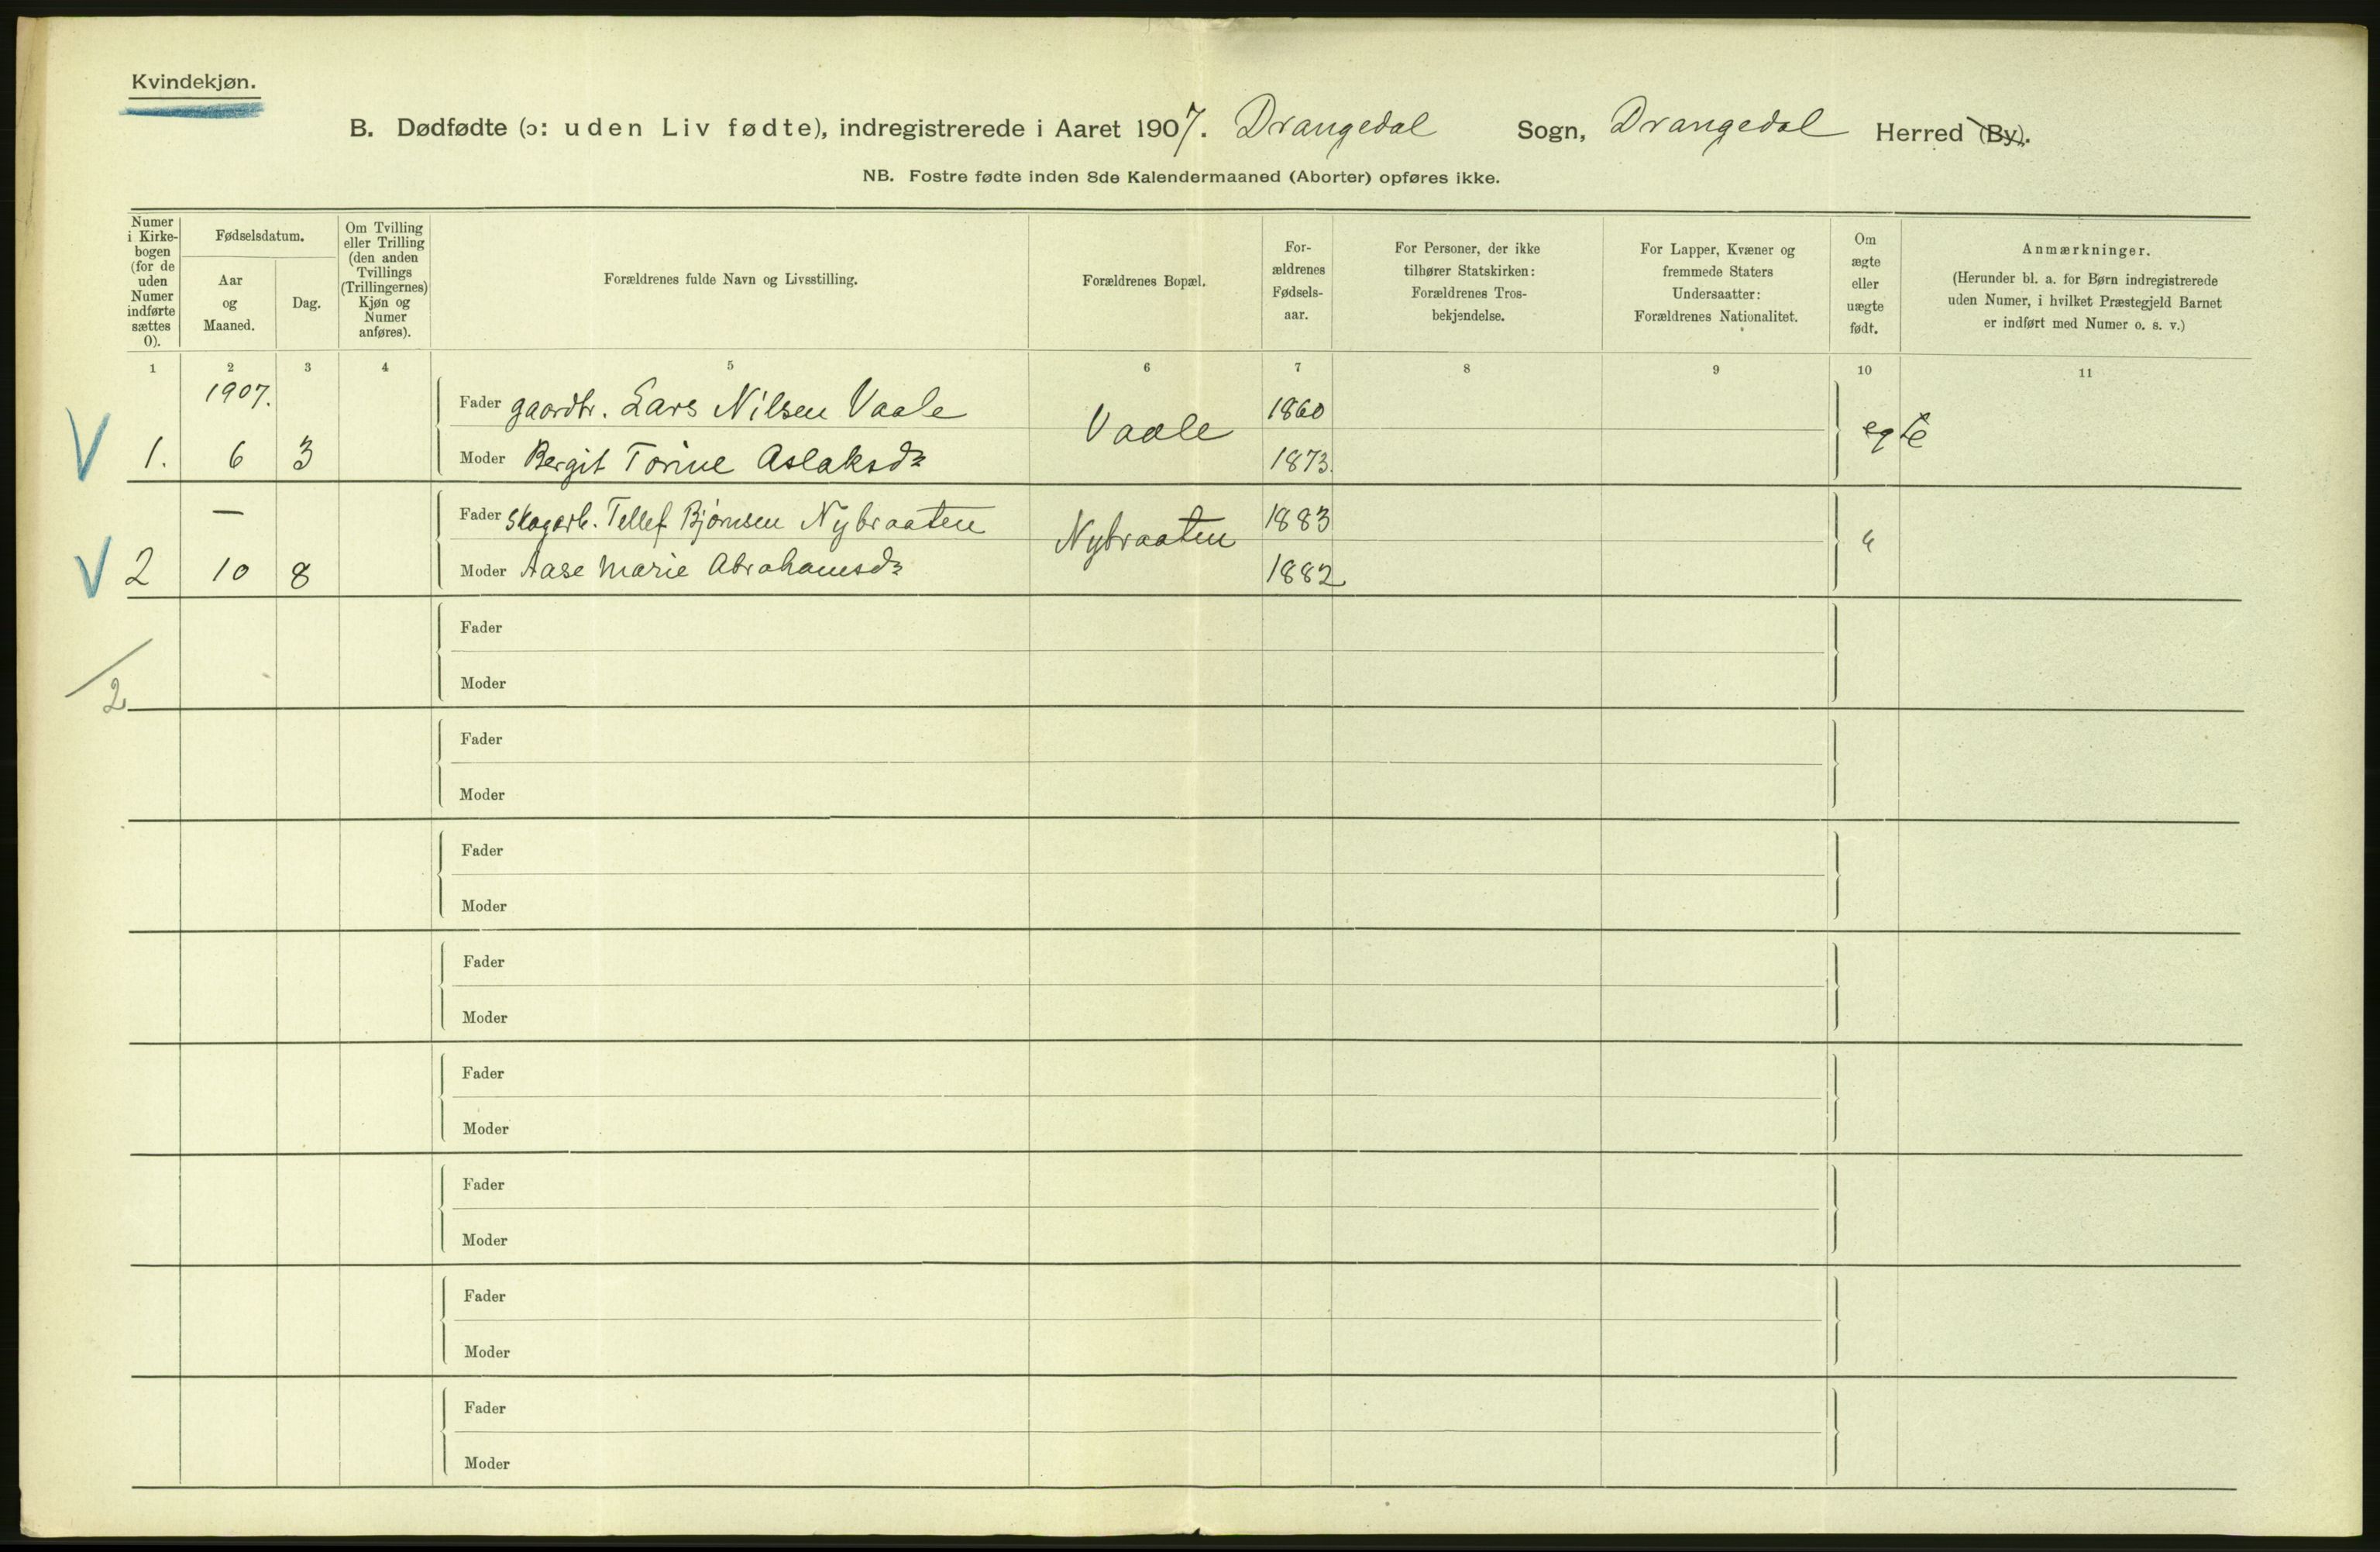 Kvindekjøn.
B. Dødfødte (ɔ: uden Liv fødte), indregistrerede i Aaret 1907. Drangedal Sogn, Drangedal Herred (By).
NB. Fostre fødte inden 8de Kalendermaaned (Aborter) opføres ikke.
Numer
i Kirke-
bogen
(for de
uden
Numer
indførte
sættes
0).
Fødselsdatum.
Aar
og
Maaned.
Dag.
Om Tvilling
eller Trilling
(den anden
Tvillings
(Trillingernes)
Kjøn og
Numer
anføres).
Forældrenes fulde Navn og Livsstilling.
Forældrenes Bopæl.
For-
ældrenes
Fødsels-
aar.
For Personer, der ikke
tilhører Statskirken:
Forældrenes Tros-
bekjendelse.
For Lapper, Kvæner og
fremmede Staters
Undersaatter:
Forældrenes Nationalitet.
Om
ægte
eller
uægte
født.
Anmærkninger.
(Herunder bl. a. for Børn indregistrerede
uden Numer, i hvilket Præstegjeld Barnet
er indført med Numer o. s. v.)
1 2 3 4 5 6 7 8 9 10 11
1907.
Fader gaardbr. Lars Nilsen Vaale Vaale 1860 egte
V 1. 6 3 Moder Bergit Torine Aslaksdr 1873.
— Fader Skogarb. Tellef Bjørnsen Nybraaten Nybraaten 1883 "
V 2 10 8 Moder Aase Marie Abrahamsdr 1882
Fader
Moder
2
Fader
Moder
Fader
Moder
Fader
Moder
Fader
Moder
Fader
Moder
Fader
Moder
Fader
Moder